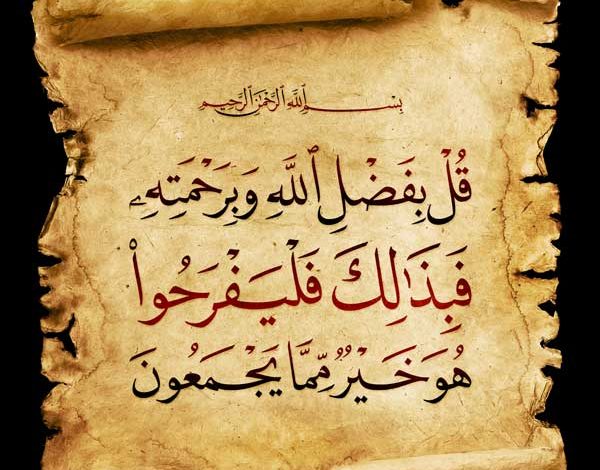 بِسْمِ ٱللَّهِ ٱلرَّحْمَٰنِ ٱلرَّحِيمِ
قُلْ بِفَضْلِ ٱللَّهِ وَبِرَحْمَتِهِۦ
فَبِذَٰلِكَ فَلْيَفْرَحُوا۟
هُوَ خَيْرٌ مِّمَّا يَجْمَعُونَ